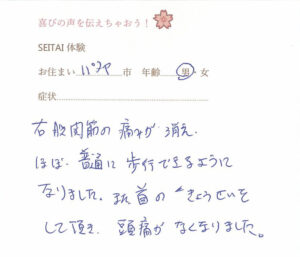 喜びの声を伝えちゃおう！
SEITAI 体験
お住まい パタヤ 市 年齢 男・女
症状
右股関節の痛みが消え、
ほぼ普通に歩行できるように
なりました。また首の きょうせいを
して頂き、頭痛がなくなりました。